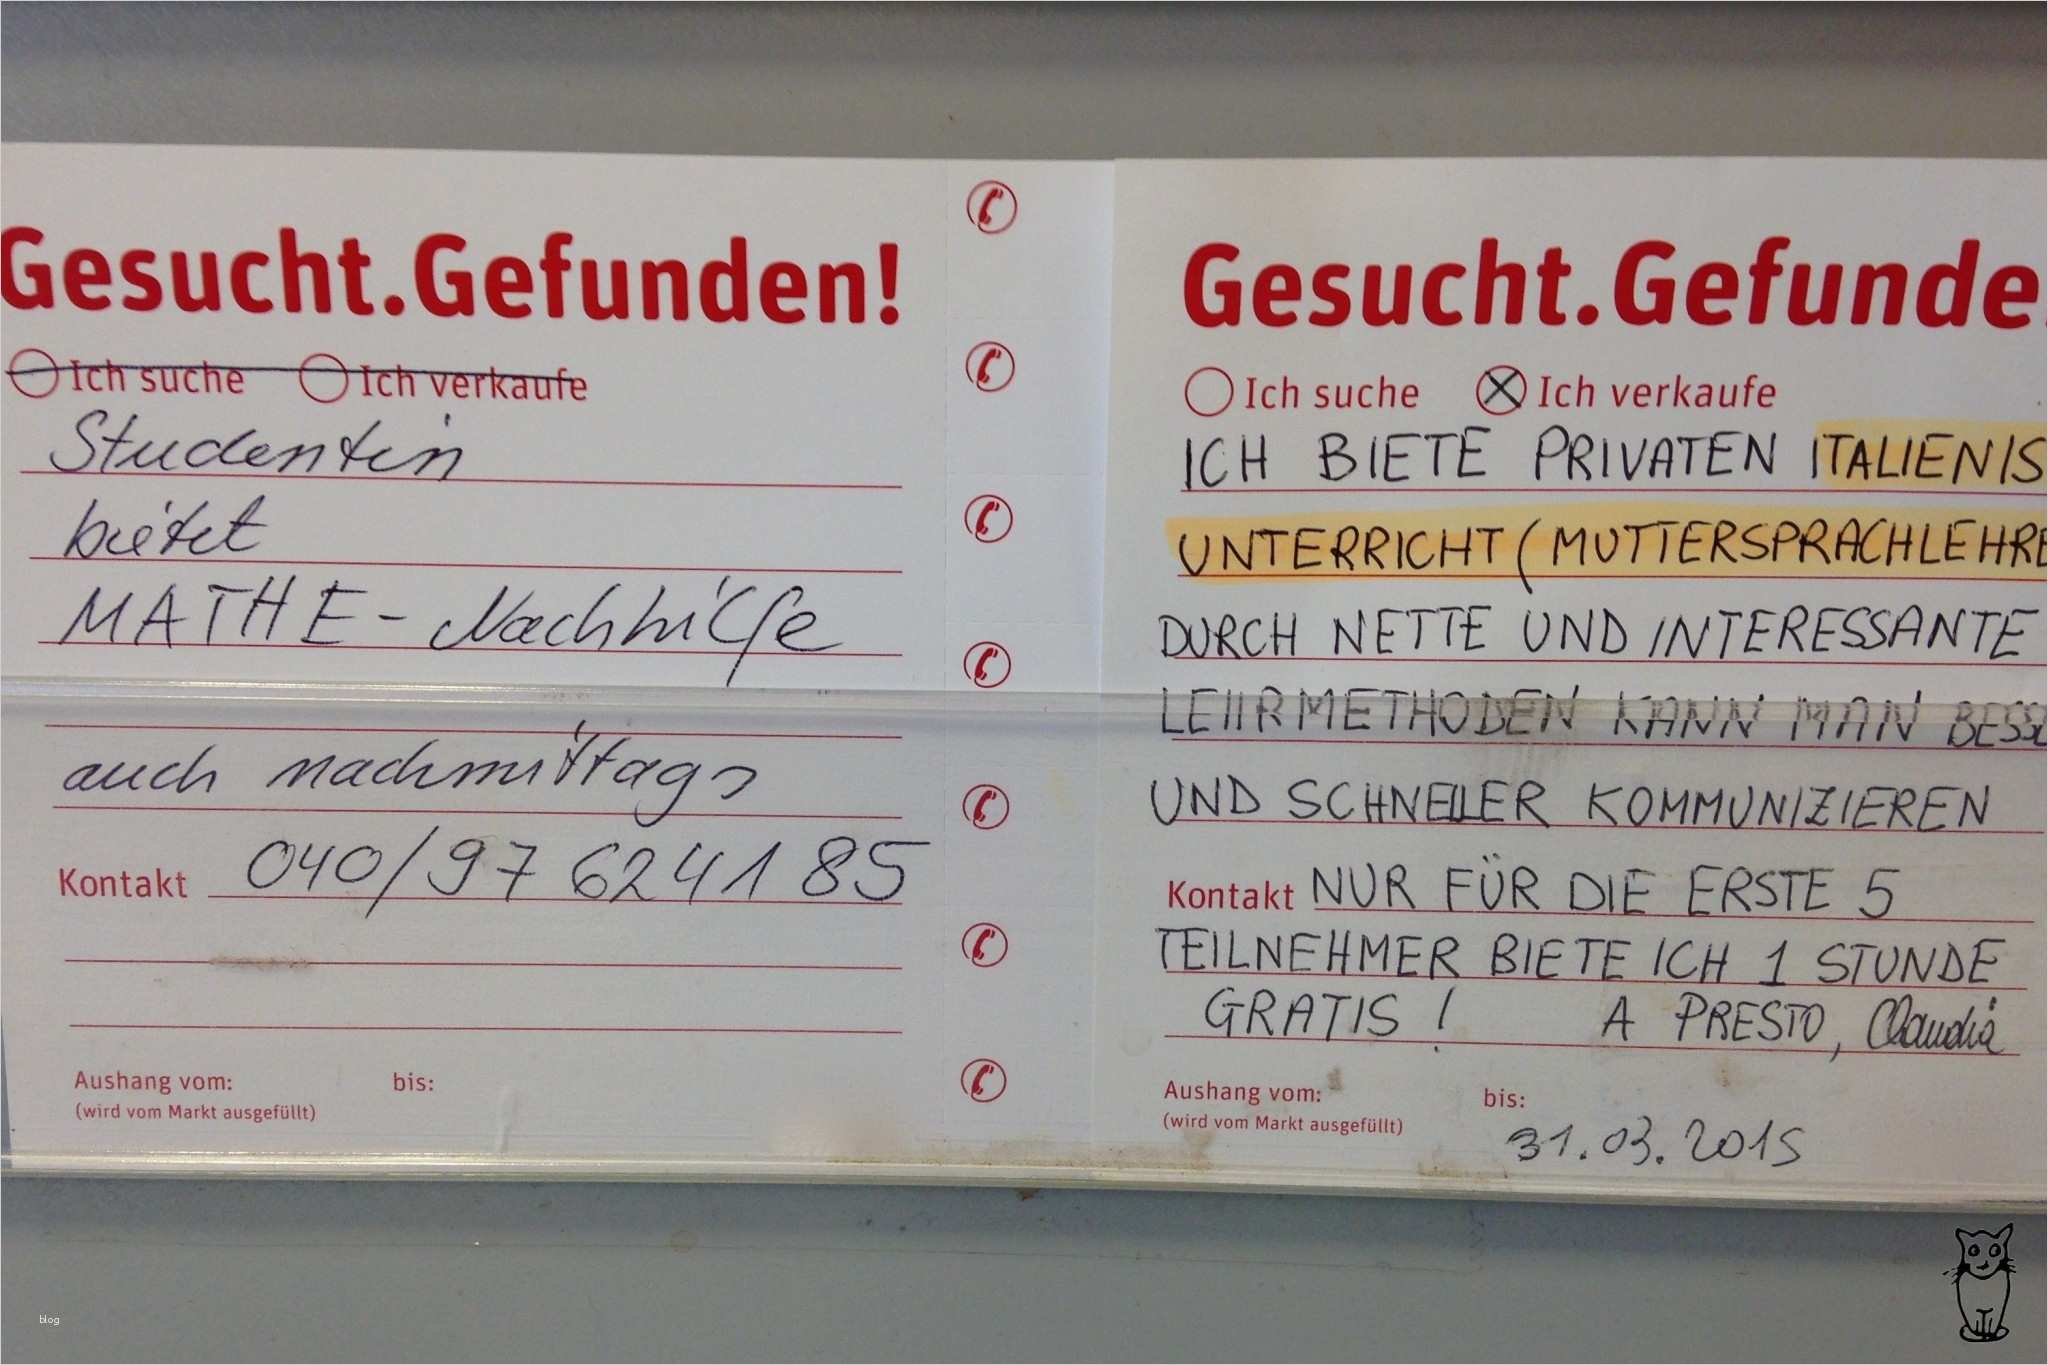 Gesucht.Gefunden!
Ich suche Ich verkaufe
Studentin
bietet
MATHE-Nachhilfe
auch nachmittags
Kontakt 040/97 6241 85
Aushang vom: bis:
(wird vom Markt ausgefüllt)
Gesucht.Gefunde
Ich suche Ich verkaufe
ICH BIETE PRIVATEN ITALIENIS
UNTERRICHT (MUTTERSPRACHLEHRE
DURCH NETTE UND INTERESSANTE
LEHRMETHODEN KANN MAN BESSE
UND SCHNELLER KOMMUNIZIEREN
Kontakt NUR FÜR DIE ERSTE 5
TEILNEHMER BIETE ICH 1 STUNDE
GRATIS ! A PRESTO, Claudia
Aushang vom: bis:
(wird vom Markt ausgefüllt)
31.03.2015
blog